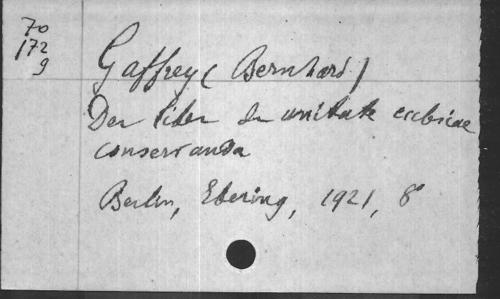 70
172
9
Gaffrey (Bernhard)
Der liber de unitate ecclesiae
conservanda
Berlin, Ebering, 1921, 8°